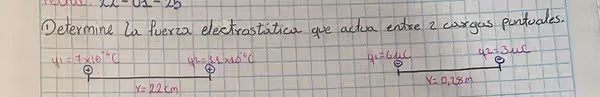 -01-25
①Determine la fuerza electrostática que actua entre 2 cargas puntuales.
q1=7x10⁻⁶C q2=31x10⁻⁶C q1=6µC q2=3µC
⊕ ⊕ ⊖ ⊖
r=22cm r=0,28m